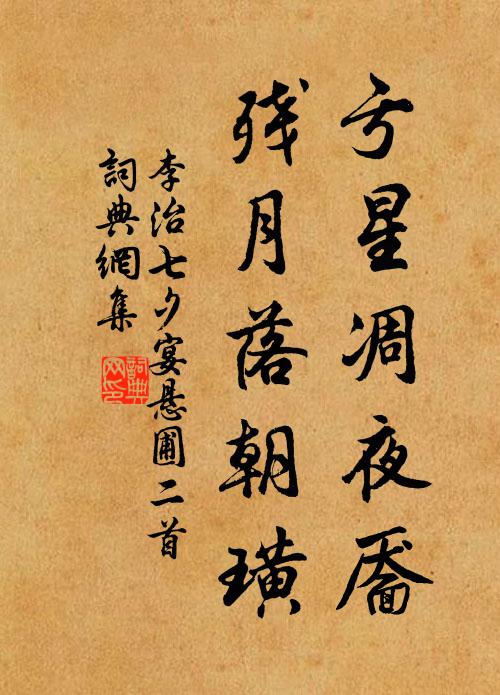 亏星凋夜靥
残月落朝璜
李治七夕宴悬圃二首
詞典網集
詞典
网印